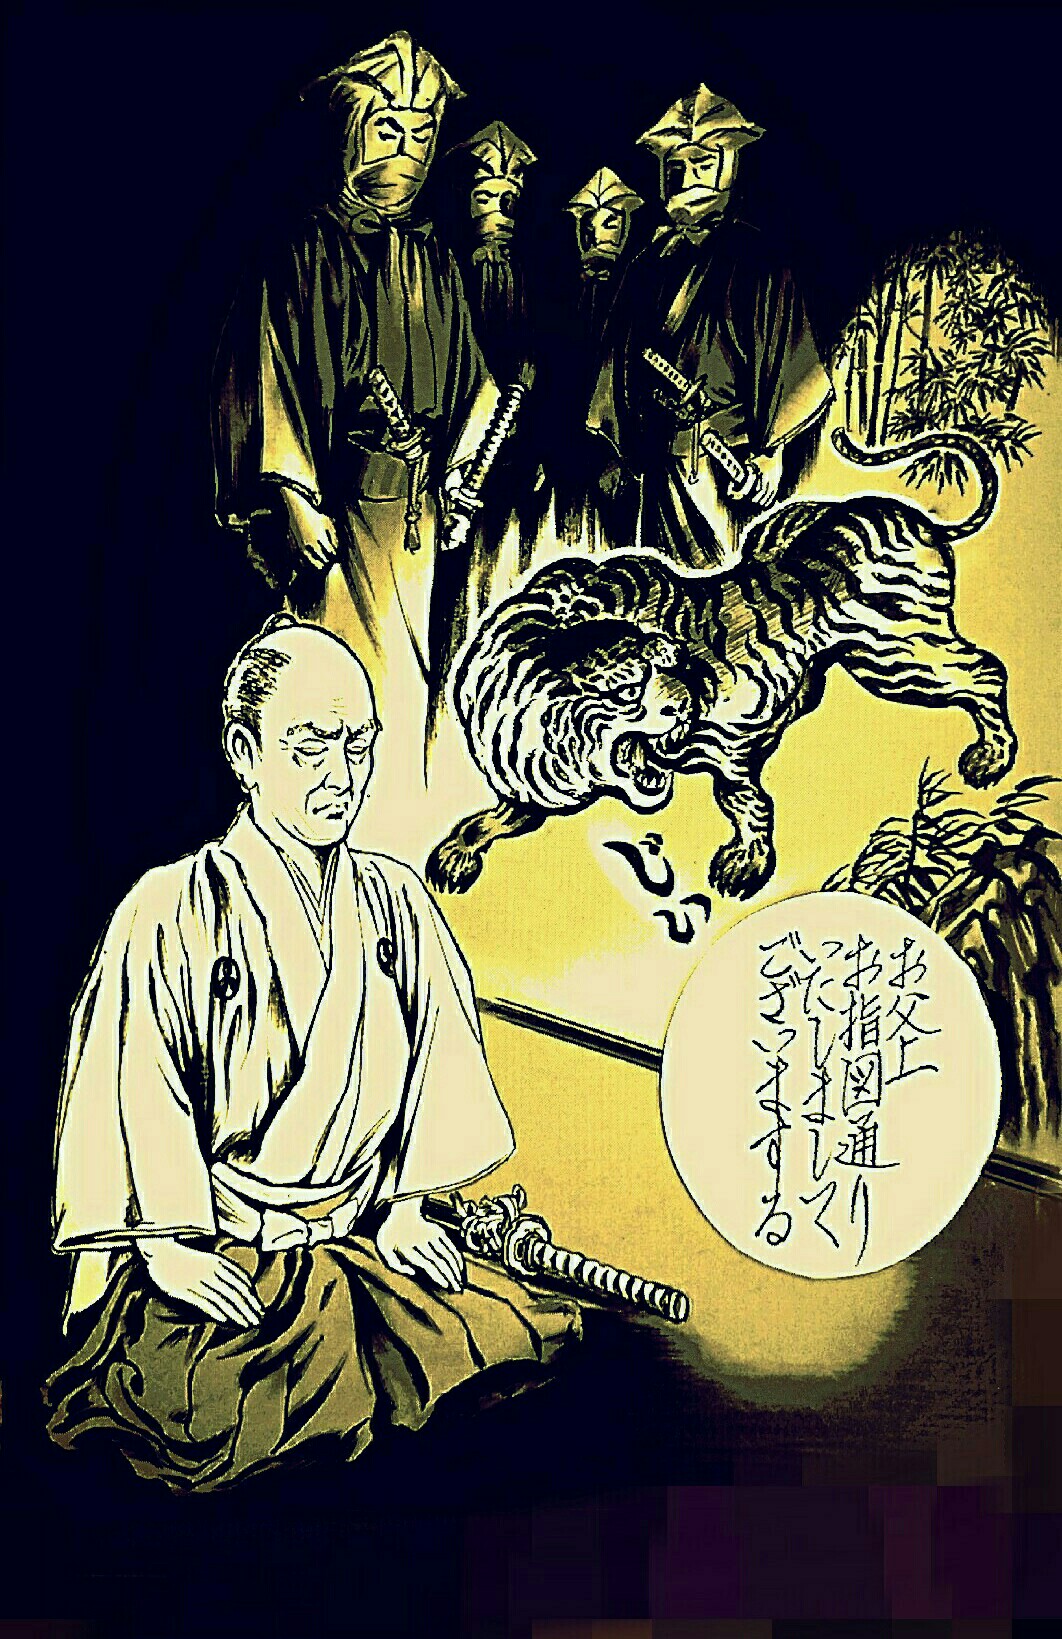 お父上
お指図通り
いたしまして
ございまする